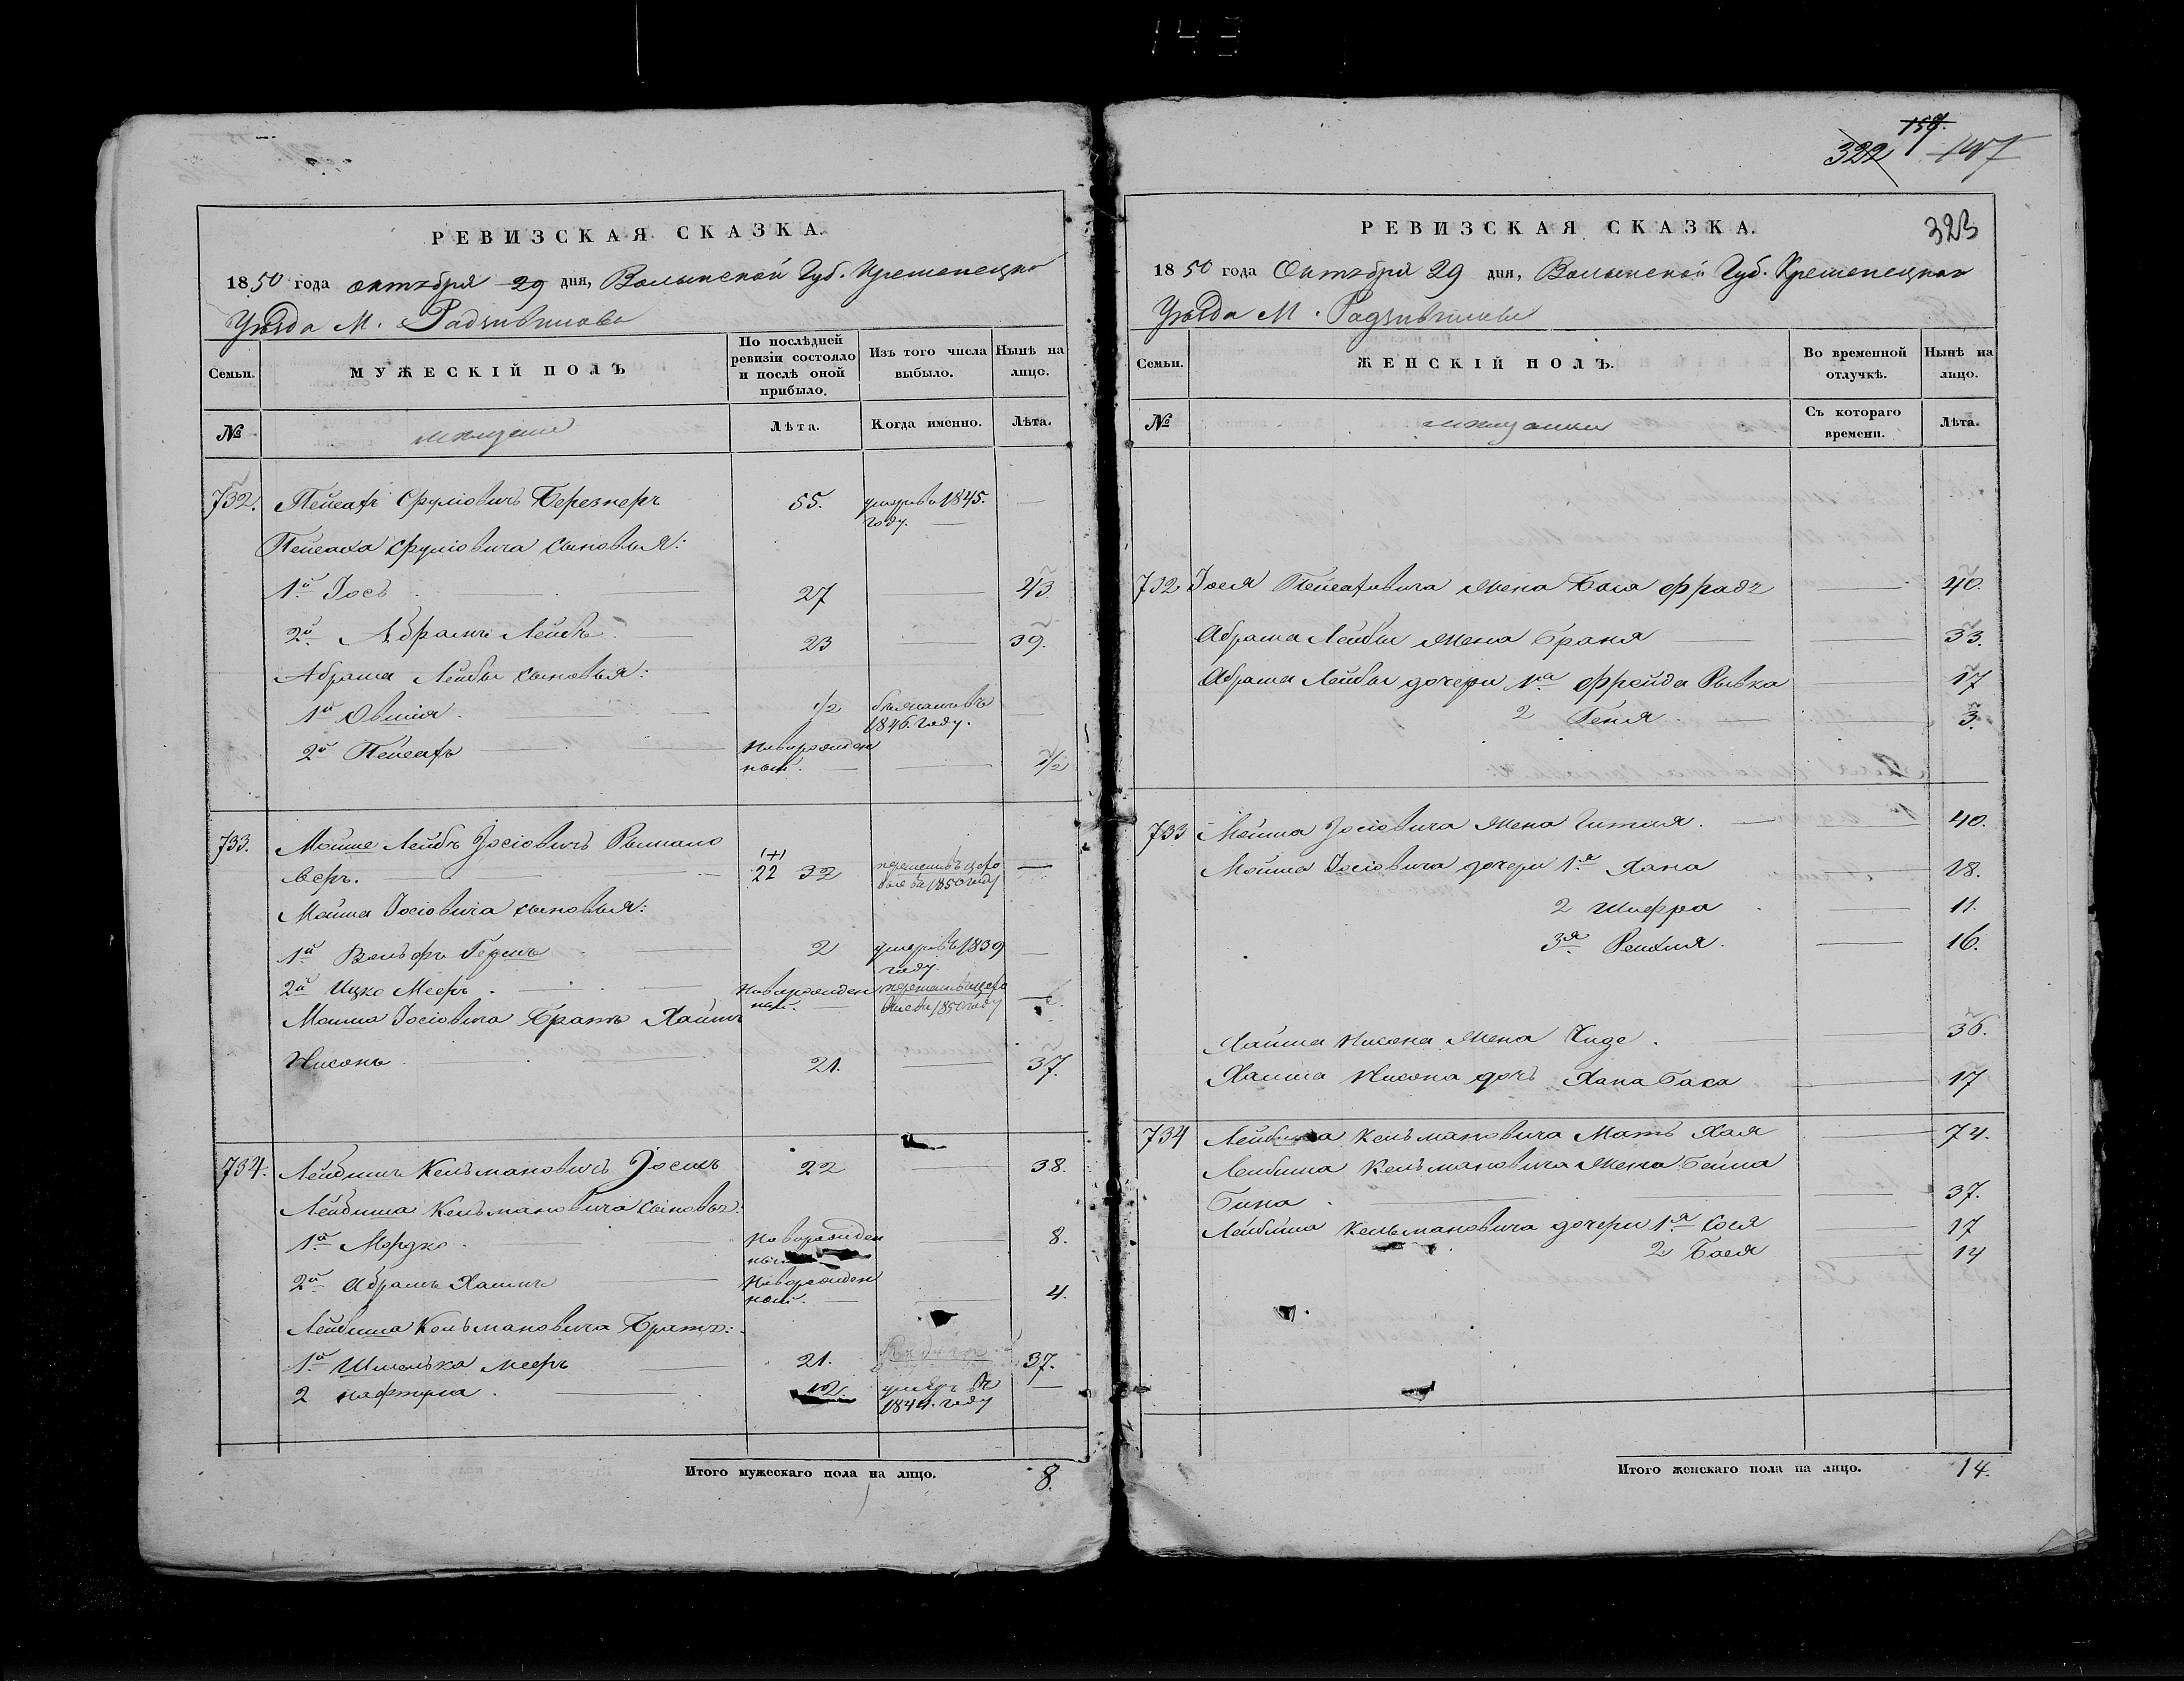 143
РЕВИЗСКАЯ СКАЗКА.
1850 года октября 29 дня, Волынской Губ. Кременецкаго
Уѣзда М. Радзивилова
Семьи.
МУЖЕСКІЙ ПОЛЪ
По послѣдней ревизіи состояло и послѣ оной прибыло.
Изъ того числа выбыло.
Нынѣ на лицо.
№
мѣщане
Лѣта.
Когда именно.
Лѣта.
732. Пейсахъ Сруліовичъ Березнеръ 55. умеръ въ 1845. —
году. —
Пейсаха Сруліовича сыновья:
1й Іось 27 — 43
2й Абрамъ Лейбъ 23 — 39.
Абрама Лейбы сыновья:
1й Овшія 1/2
1846. году. —
2й Пейсахъ Новорожден
ный. — — 1/2
733. Мошко Лейбъ Іосіовичъ
22 32 въ 1850 году —
Мошка Іосіовича сыновья:
1й Вольфъ Гершъ 2 умеръ въ 1839 —
году.
2й Ицко Мееръ Новорожден
ный. — въ 1850 году —
Мошка Іосіовича Братъ Хаимъ
Нисонъ 21. — 37.
734. Лейбишъ Кельмановичъ 22 — 38.
Лейбиша Кельмановича сыновья:
1й Мордко Новорожден — 8.
2й Абрамъ Хаимъ Новорожден
ный. — — 4.
Лейбиша Кельмановича Братья:
1й Шмелька Мееръ 21. 37.
2 Нафтула 12. умеръ въ —
1844. году
Итого мужескаго пола на лицо. 8.
159. 322 147
323
РЕВИЗСКАЯ СКАЗКА.
1850 года Октября 29 дня, Волынской Губ. Кременецкаго
Уѣзда М. Радзивилова
Семьи.
ЖЕНСКІЙ ПОЛЪ.
Во временной отлучкѣ.
Нынѣ на лицо.
№
мѣщанки
Съ котораго времени.
Лѣта.
732 Іося Пейсаховича жена Бася Фрадъ — 40.
Абрама Лейбы жена Браня — 33.
Абрама Лейбы дочери 1я Фрейда Рывка — 17
2 Геня — 3.
733 Мошка Іосіовича жена Гитля — 40.
Мошка Іосіовича дочери 1я Хана — 18.
2 Шифра — 11.
3я Рейзля — 16.
Хаима Нисона жена — 36.
Хаима Нисона дочь Хана Бася — 17
734 Лейбиша Кельмановича Мать Хая — 74.
Лейбиша Кельмановича жена Бейла
Бина — 37.
Лейбиша Кельмановича дочери 1я Сося — 17
2 Бася — 14
Итого женскаго пола на лицо. 14.